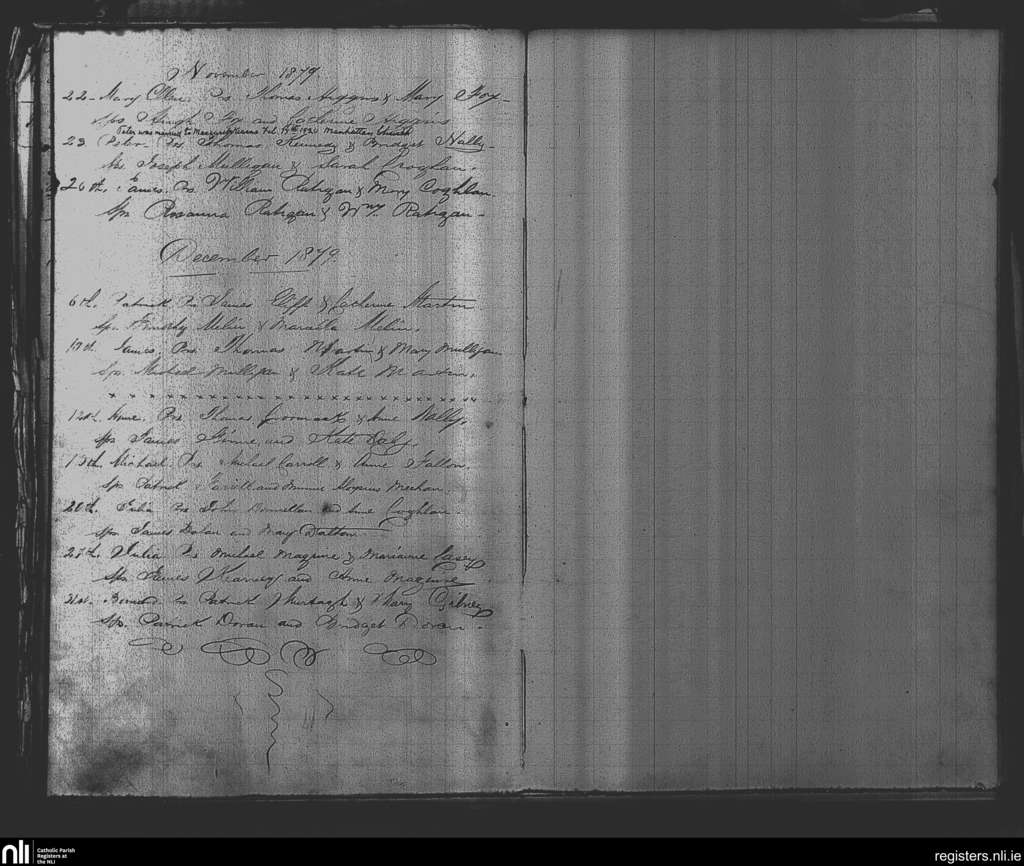 November 1879
22 - Mary Ellen. Prs Thomas Higgins & Mary Fox -
Sps Hugh Fox and Catherine Higgins
Peter was married to Feb 1920 Manhattan Church
23 Peter - Prs Thomas Kennedy & Bridget Nally -
Sps Joseph Mulligan & Sarah Croghan.
26th. James. Prs William Ratigan & Mary Coghlan.
Sps Rosanna Ratigan & Wm. Ratigan -
December 1879.
6th. Patrick Prs James Cliffe & Catherine Martin
Sp. Timothy Melia & Melia.
James, Prs Thomas Martin & Mary Mulligan
Sps. Michael Mulligan & Kate Martin.
x x x x x x x x x x x x x x x x x x x x x x x x x x
Anne. Prs Thomas & Anne Nally.
Sps James and Kate Daly.
13th. Michael. Prs Michael Carroll & Anne Fallon.
Sps Patrick and Aloysius Meehan.
20th. Prs John Donnellan and Anne Coghlan -
Sps James Dolan and Mary Dalton
27th. Julia Prs Michael Maguire & Marianne Casey
Sps James Kearney and Anne Maguire
Prs Patrick Murtagh & Mary Gibney
Sps. Patrick Doran and Bridget Doran.
nli
Catholic Parish
Registers at
the NLI
registers.nli.ie